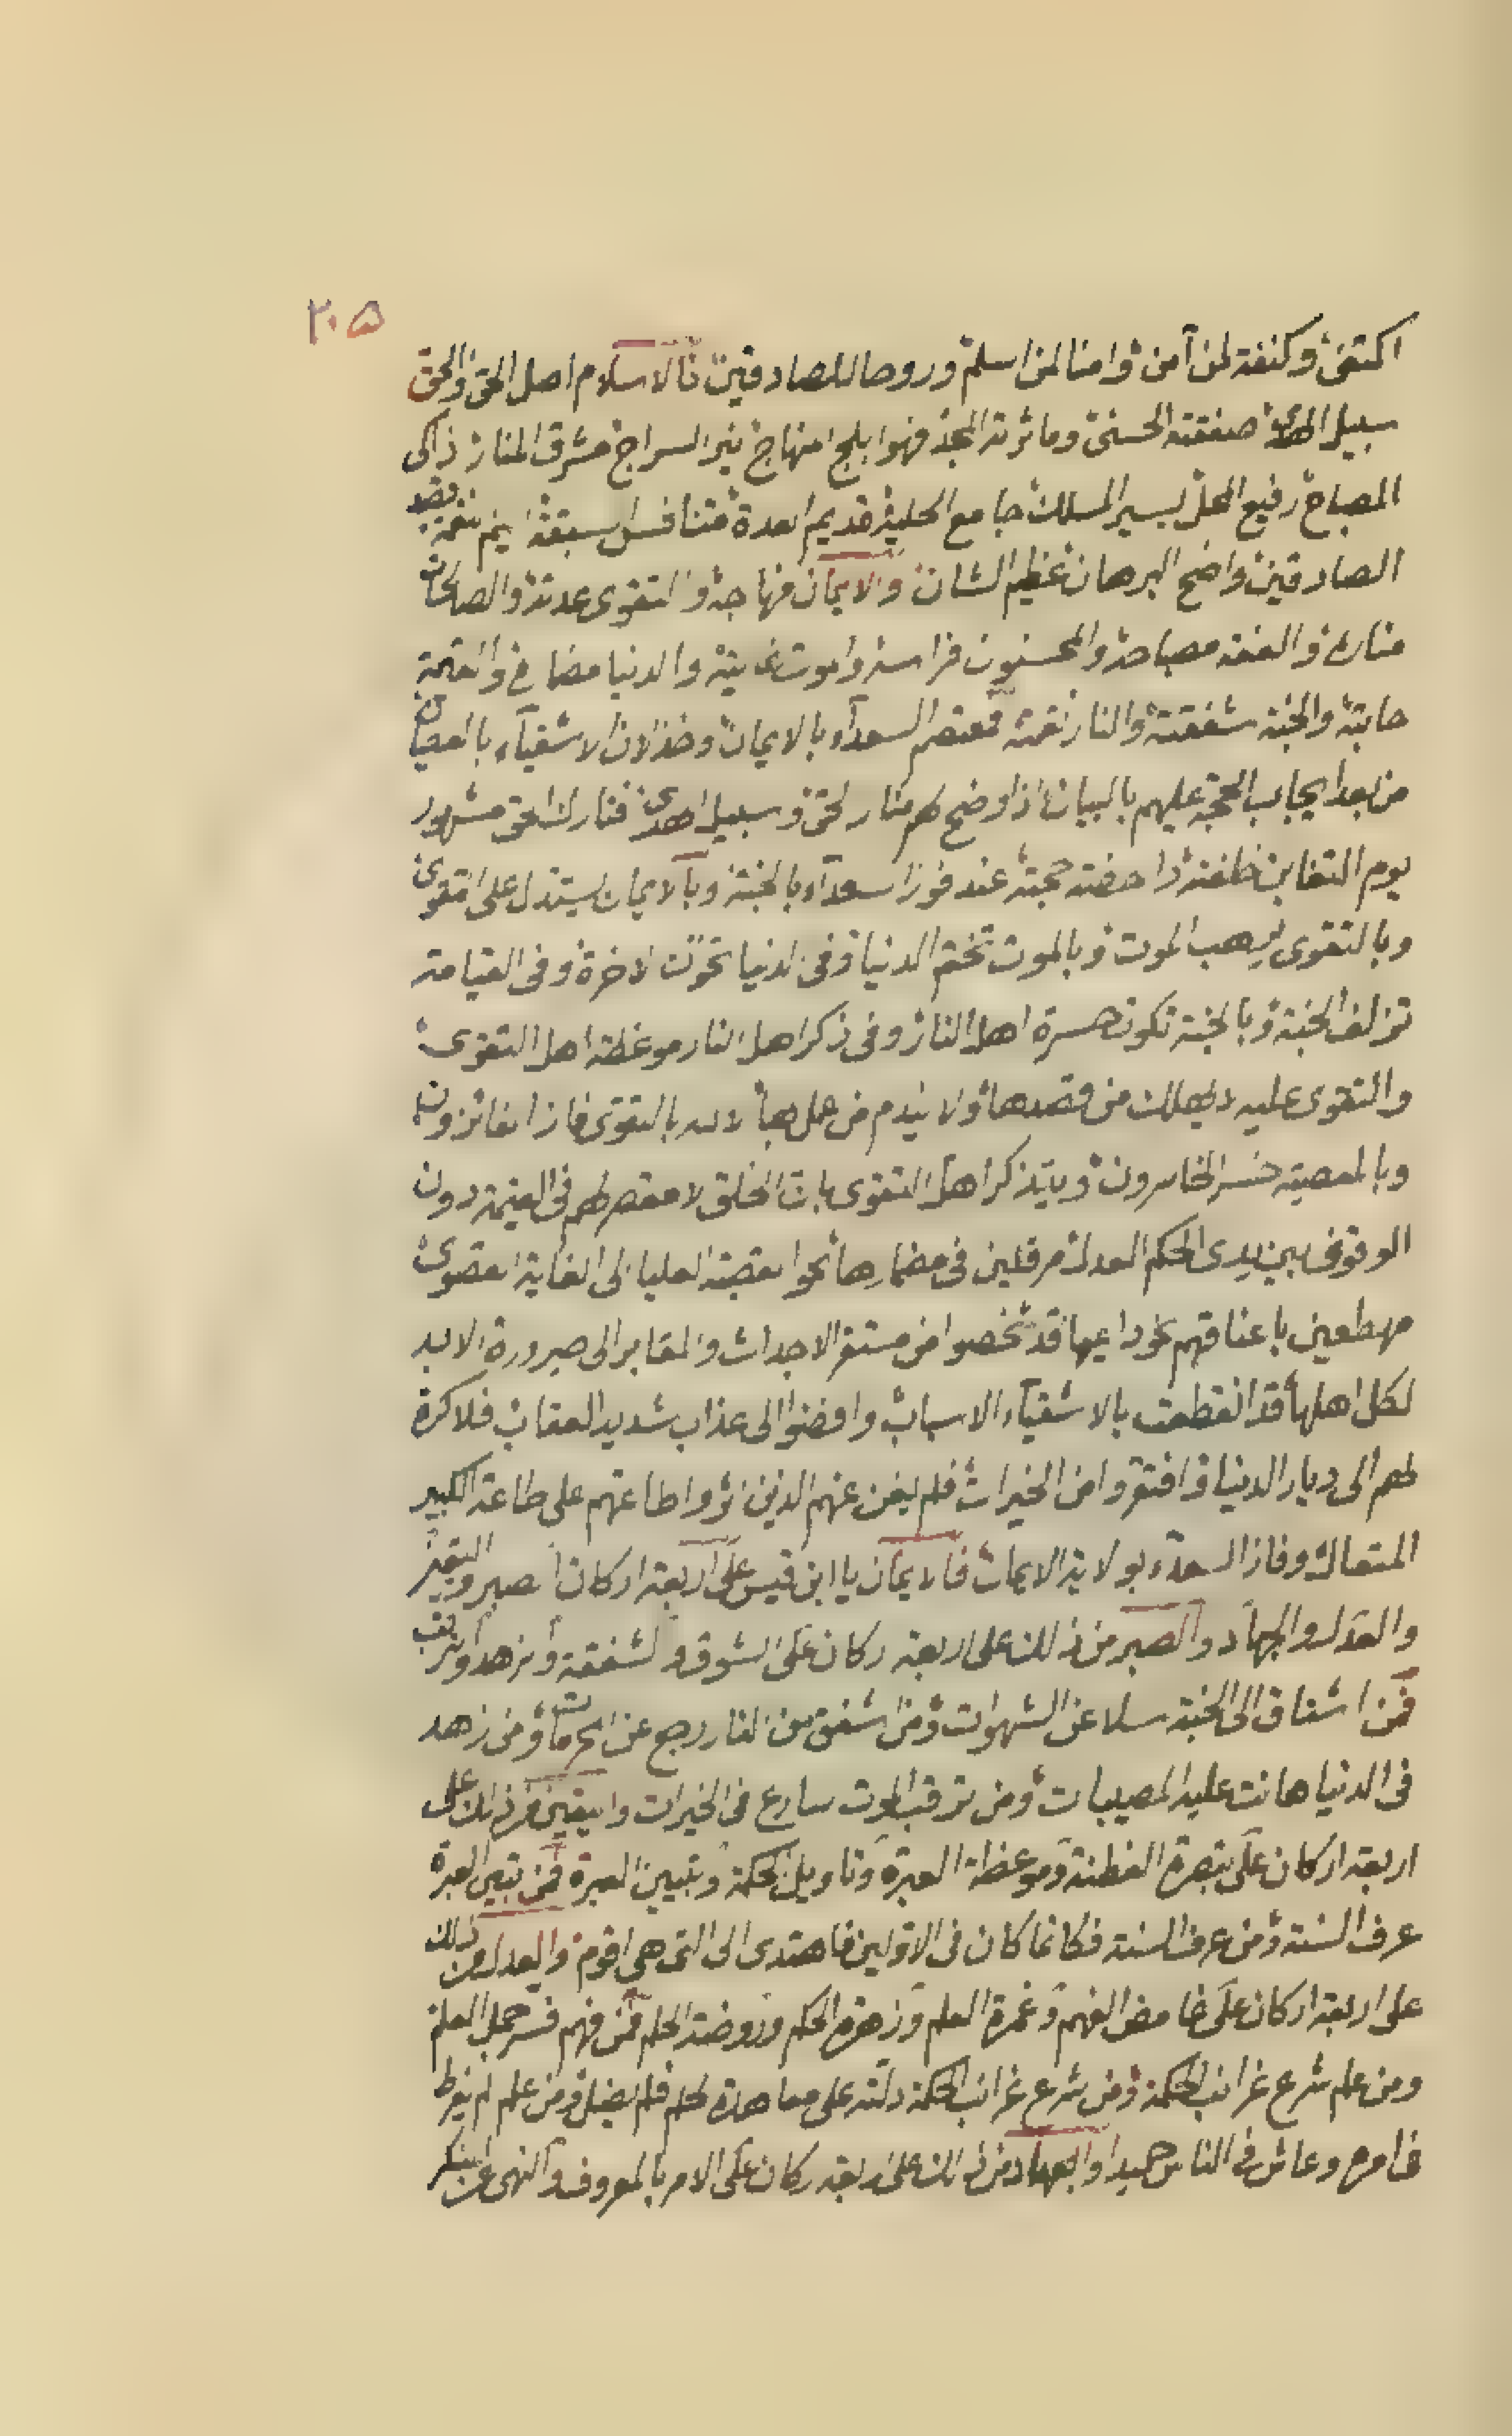 ٢٠٥
اكتفى وكنفة لمن آمن وامنا لمن اسلم وروحا للصادقين فالاسلام اصل الحق والحق
سبيل الهدى صفقته الحسنى وماثرته المجد فهو ابلج المنهاج نير السراج مشرق المنار ذاكى
المصباح رفيع المحل يسير المسلك جامع الحلية قديم العدة متنافس السبقة اليم النقمة قصد
الصادقين واضح البرهان عظيم الشان والايمان منهاجه والتقوى عدته والصالحات
مناره والعفة مصباحه والمحسنون فراسنه والموت غايته والدنيا مضماره والقيمة
حلبته والجنة سبقته والنار نقمته فمعتصم السعدآء بالايمان وخذلان الاشقيآء بالعصيان
من بعد ايجاب الحجة عليهم بالبيان اذا وضح لهم منار الحق وسبيل الهدى فتارك الحق مشهور
يوم التغابن خلفته داحضة حجته عند فوز السعدآء بالجنة وبالايمان يستدل على التقوى
وبالتقوى يرهب الموت وبالموت تختم الدنيا وفى الدنيا تحوت الاخرة وفى القيامة
تزلف الجنة وبالجنة تكون حسرة اهل النار وفى ذكر اهل النار موعظة اهل التقوى
والتقوى عليه لا يهلك من قصدها ولا يندم من عمل بها لانه بالتقوى فاز الفائزون
وبالمعصية خسر الخاسرون ويتذكر اهل التقوى بان الخلق لا مقصر لهم فى القيمة دون
الوقوف بين يدى الحكم العدل مرقلين فى مضمارها نحو القصبة العليا الى الغاية القصوى
مهطعين باعناقهم نحو داعيها قد شخصوا من مستقر الاجداث والمقابر الى صيرورة الابد
لكل اهلها قد انقطعت بالاشقيآء الاسباب وافضوا الى عذاب شديد العقاب فلا كرة
لهم الى ديار الدنيا وافتقروا من الخيرات فلم يغن عنهم الذين اثروا طاعتهم على طاعة الكبير
المتعال وفاز السعدآء بولاية الايمان فالايمان يا ابن قيس على اربعة اركان الصبر واليقين
والعدل والجهاد والصبر من ذلك على اربعة اركان على الشوق والشفقة والزهد والترقب
فمن اشتاق الى الجنة سلا عن الشهوات ومن اشفق من النار رجع عن المحرمات ومن زهد
فى الدنيا هانت عليه المصيبات ومن ترقب الموت سارع فى الخيرات واليقين من ذلك على
اربعة اركان على تبصرة الفطنة وموعظة العبرة وتاويل الحكمة وتبيين العبرة فمن تبين العبرة
عرف السنة ومن عرف السنة فكانما كان فى الاولين فاهتدى الى التى هى اقوم والعدل من ذلك
على اربعة اركان على غامض الفهم وغمرة العلم وزهرة الحكم وروضة الحلم فمن فهم فسر جمل العلم
ومن علم شرع غرائب الحكمة ومن شرع غرائب الحكمة دلته على معاهدة الحلم فلم يضل ومن علم لم يفرط
فى امره وعاش فى الناس حميدا والجهاد من ذلك على اربعة اركان على الامر بالمعروف والنهى عن المنكر